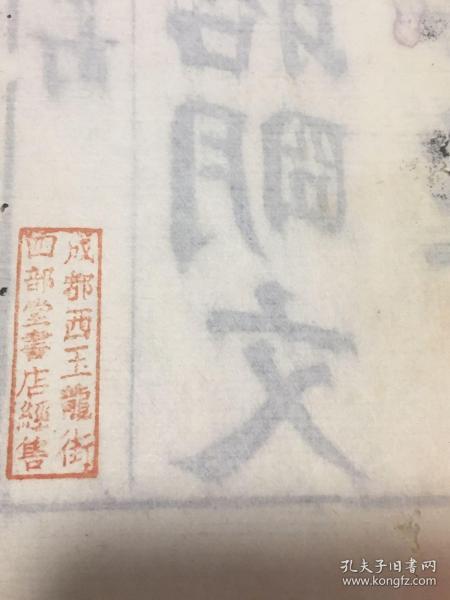 成都西玉龍街
四部堂書店經售
昭明文
孔夫子旧书网
www.kongfz.com